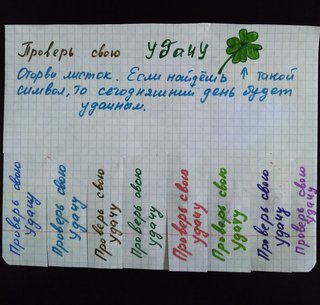 Проверь свою удачу
Оторви листок. Если найдёшь ↑ такой
символ, то сегодняшний день будет
удачным.
Проверь свою
удачу
Проверь свою
удачу
Проверь свою
удачу
Проверь свою
удачу
Проверь свою
удачу
Проверь свою
удачу
Проверь свою
удачу
Проверь свою
удачу